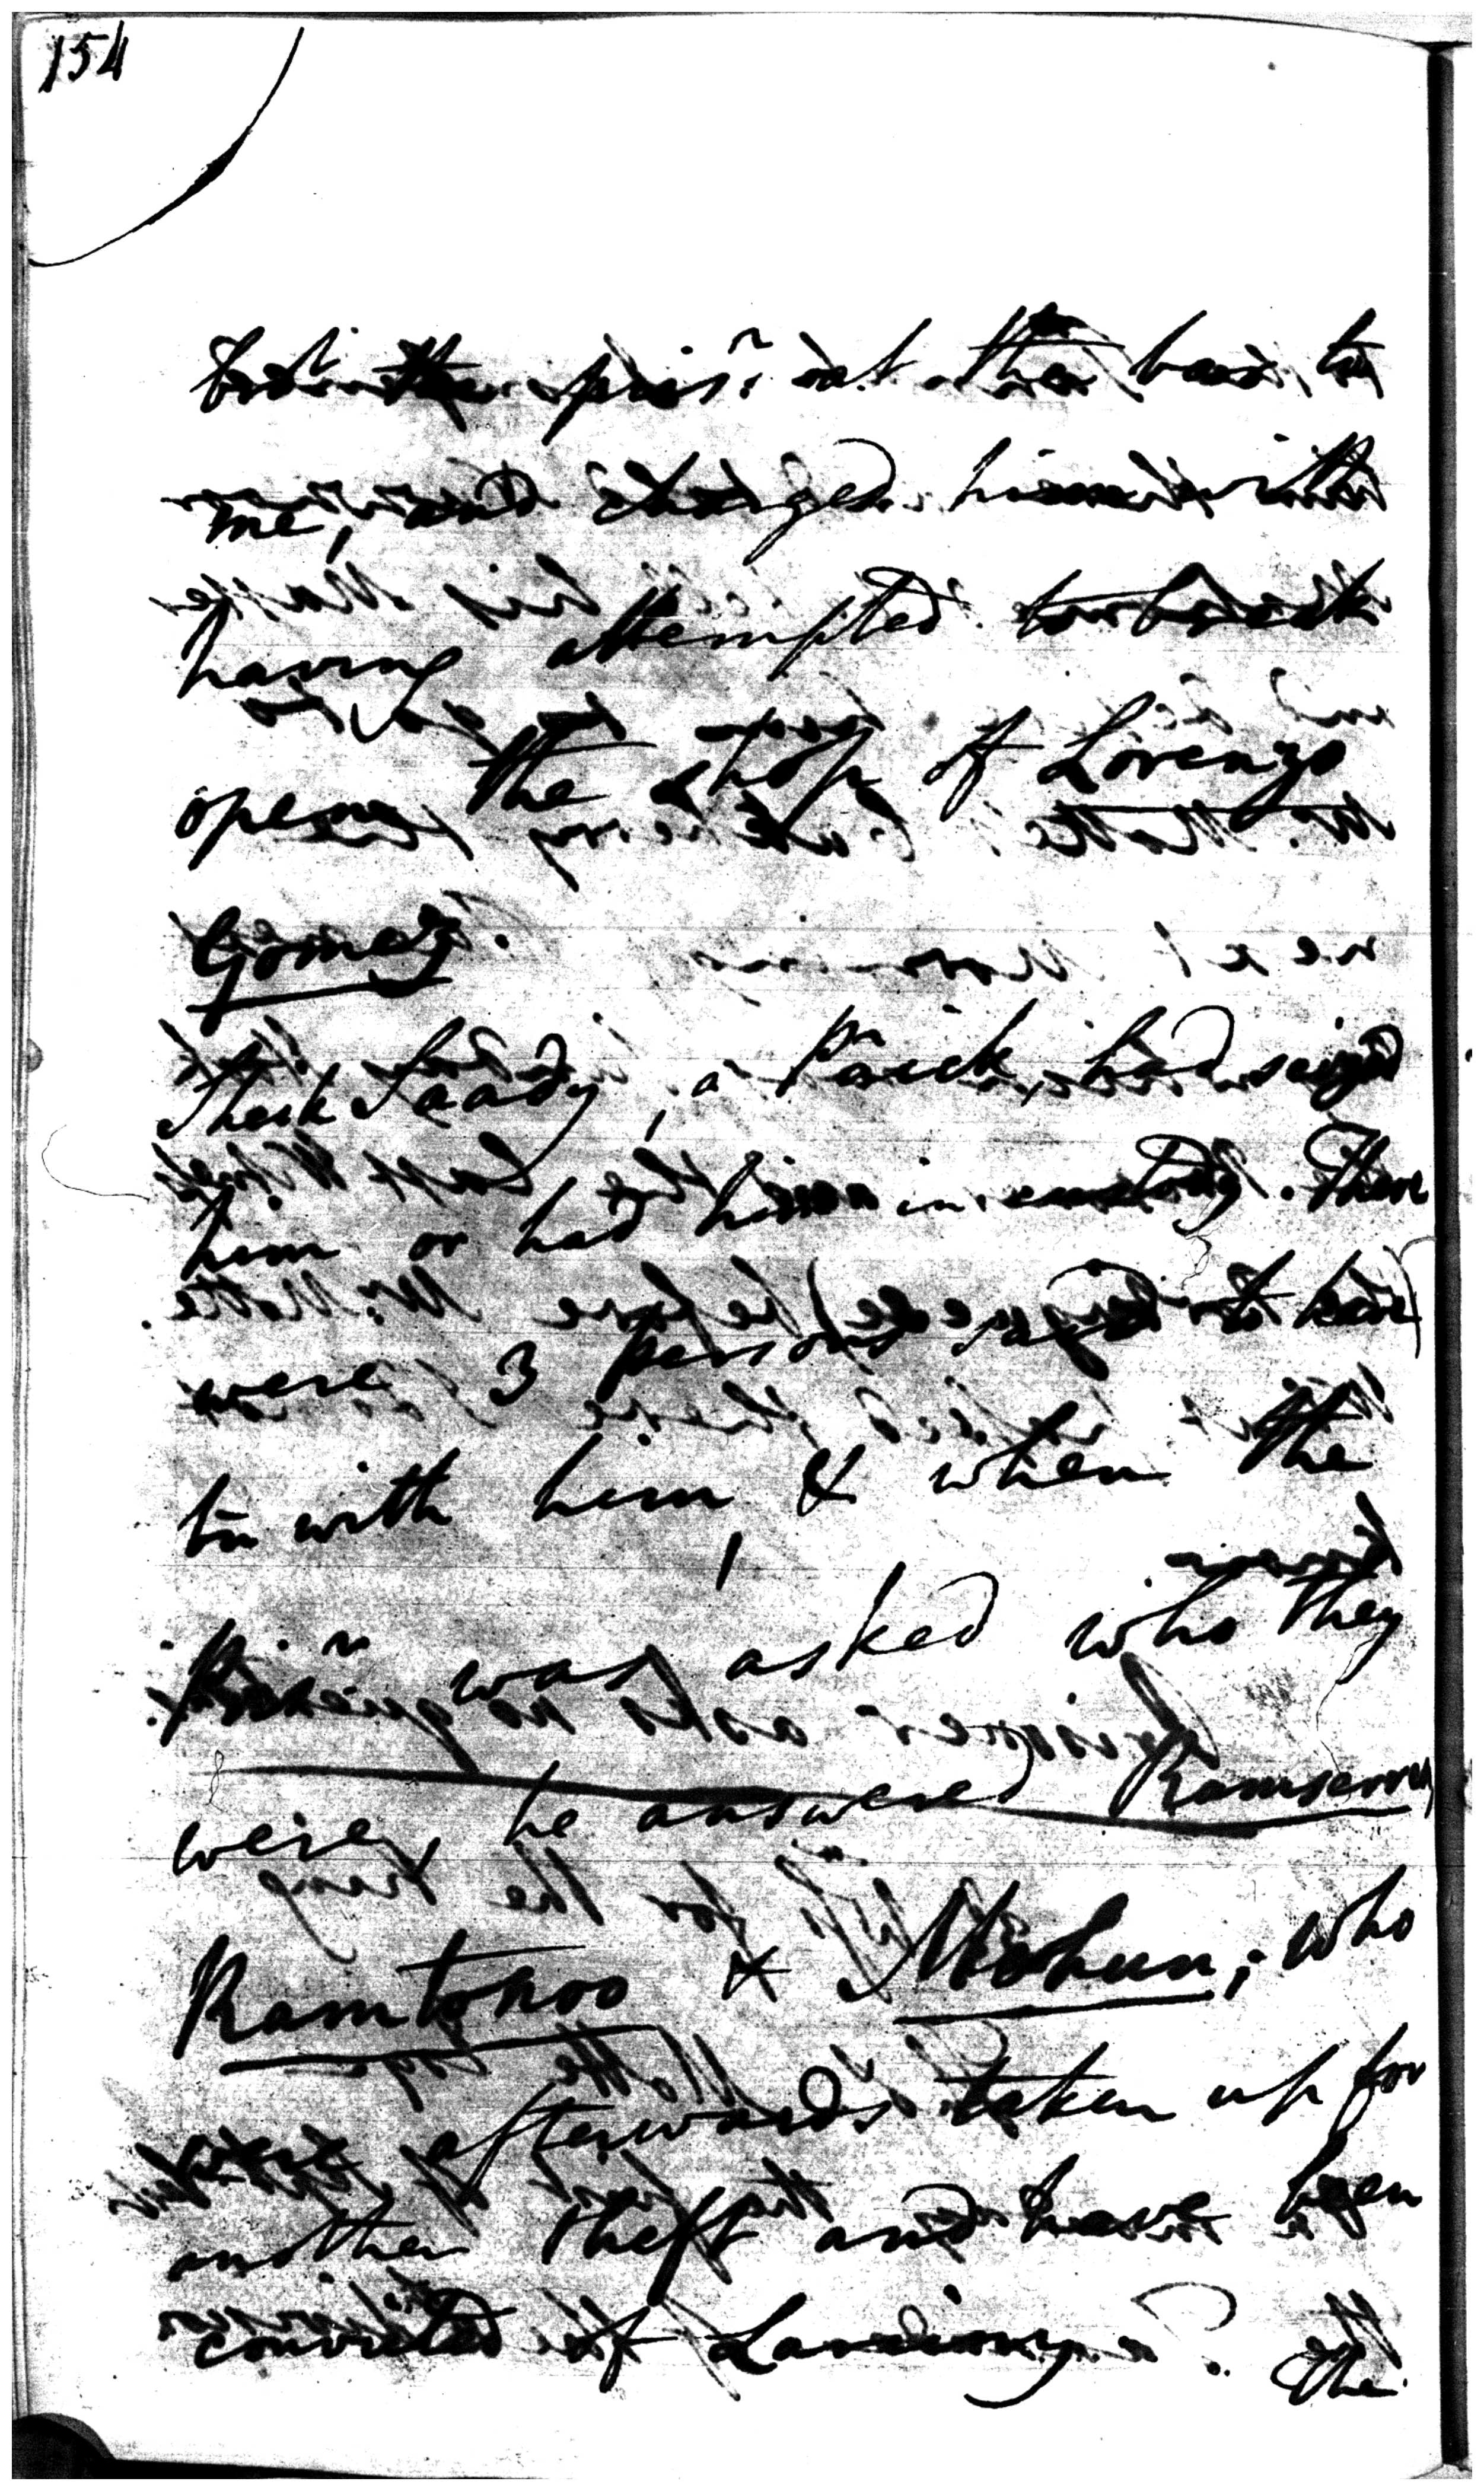 154
the pris.r at the bar to
me, and charged him with
having attempted to break
open the shop of Lorenzo
Gomez.
Sheik Saady, a Paick, had seized
him or had him in custody. There
were 3 persons to have
with him, & when the
Pris.r was asked who they
were, he answered Ramsermy
Ramtonoo & Mohun; who
were afterwards taken up for
another theft and have been
convicted of Larceny. The